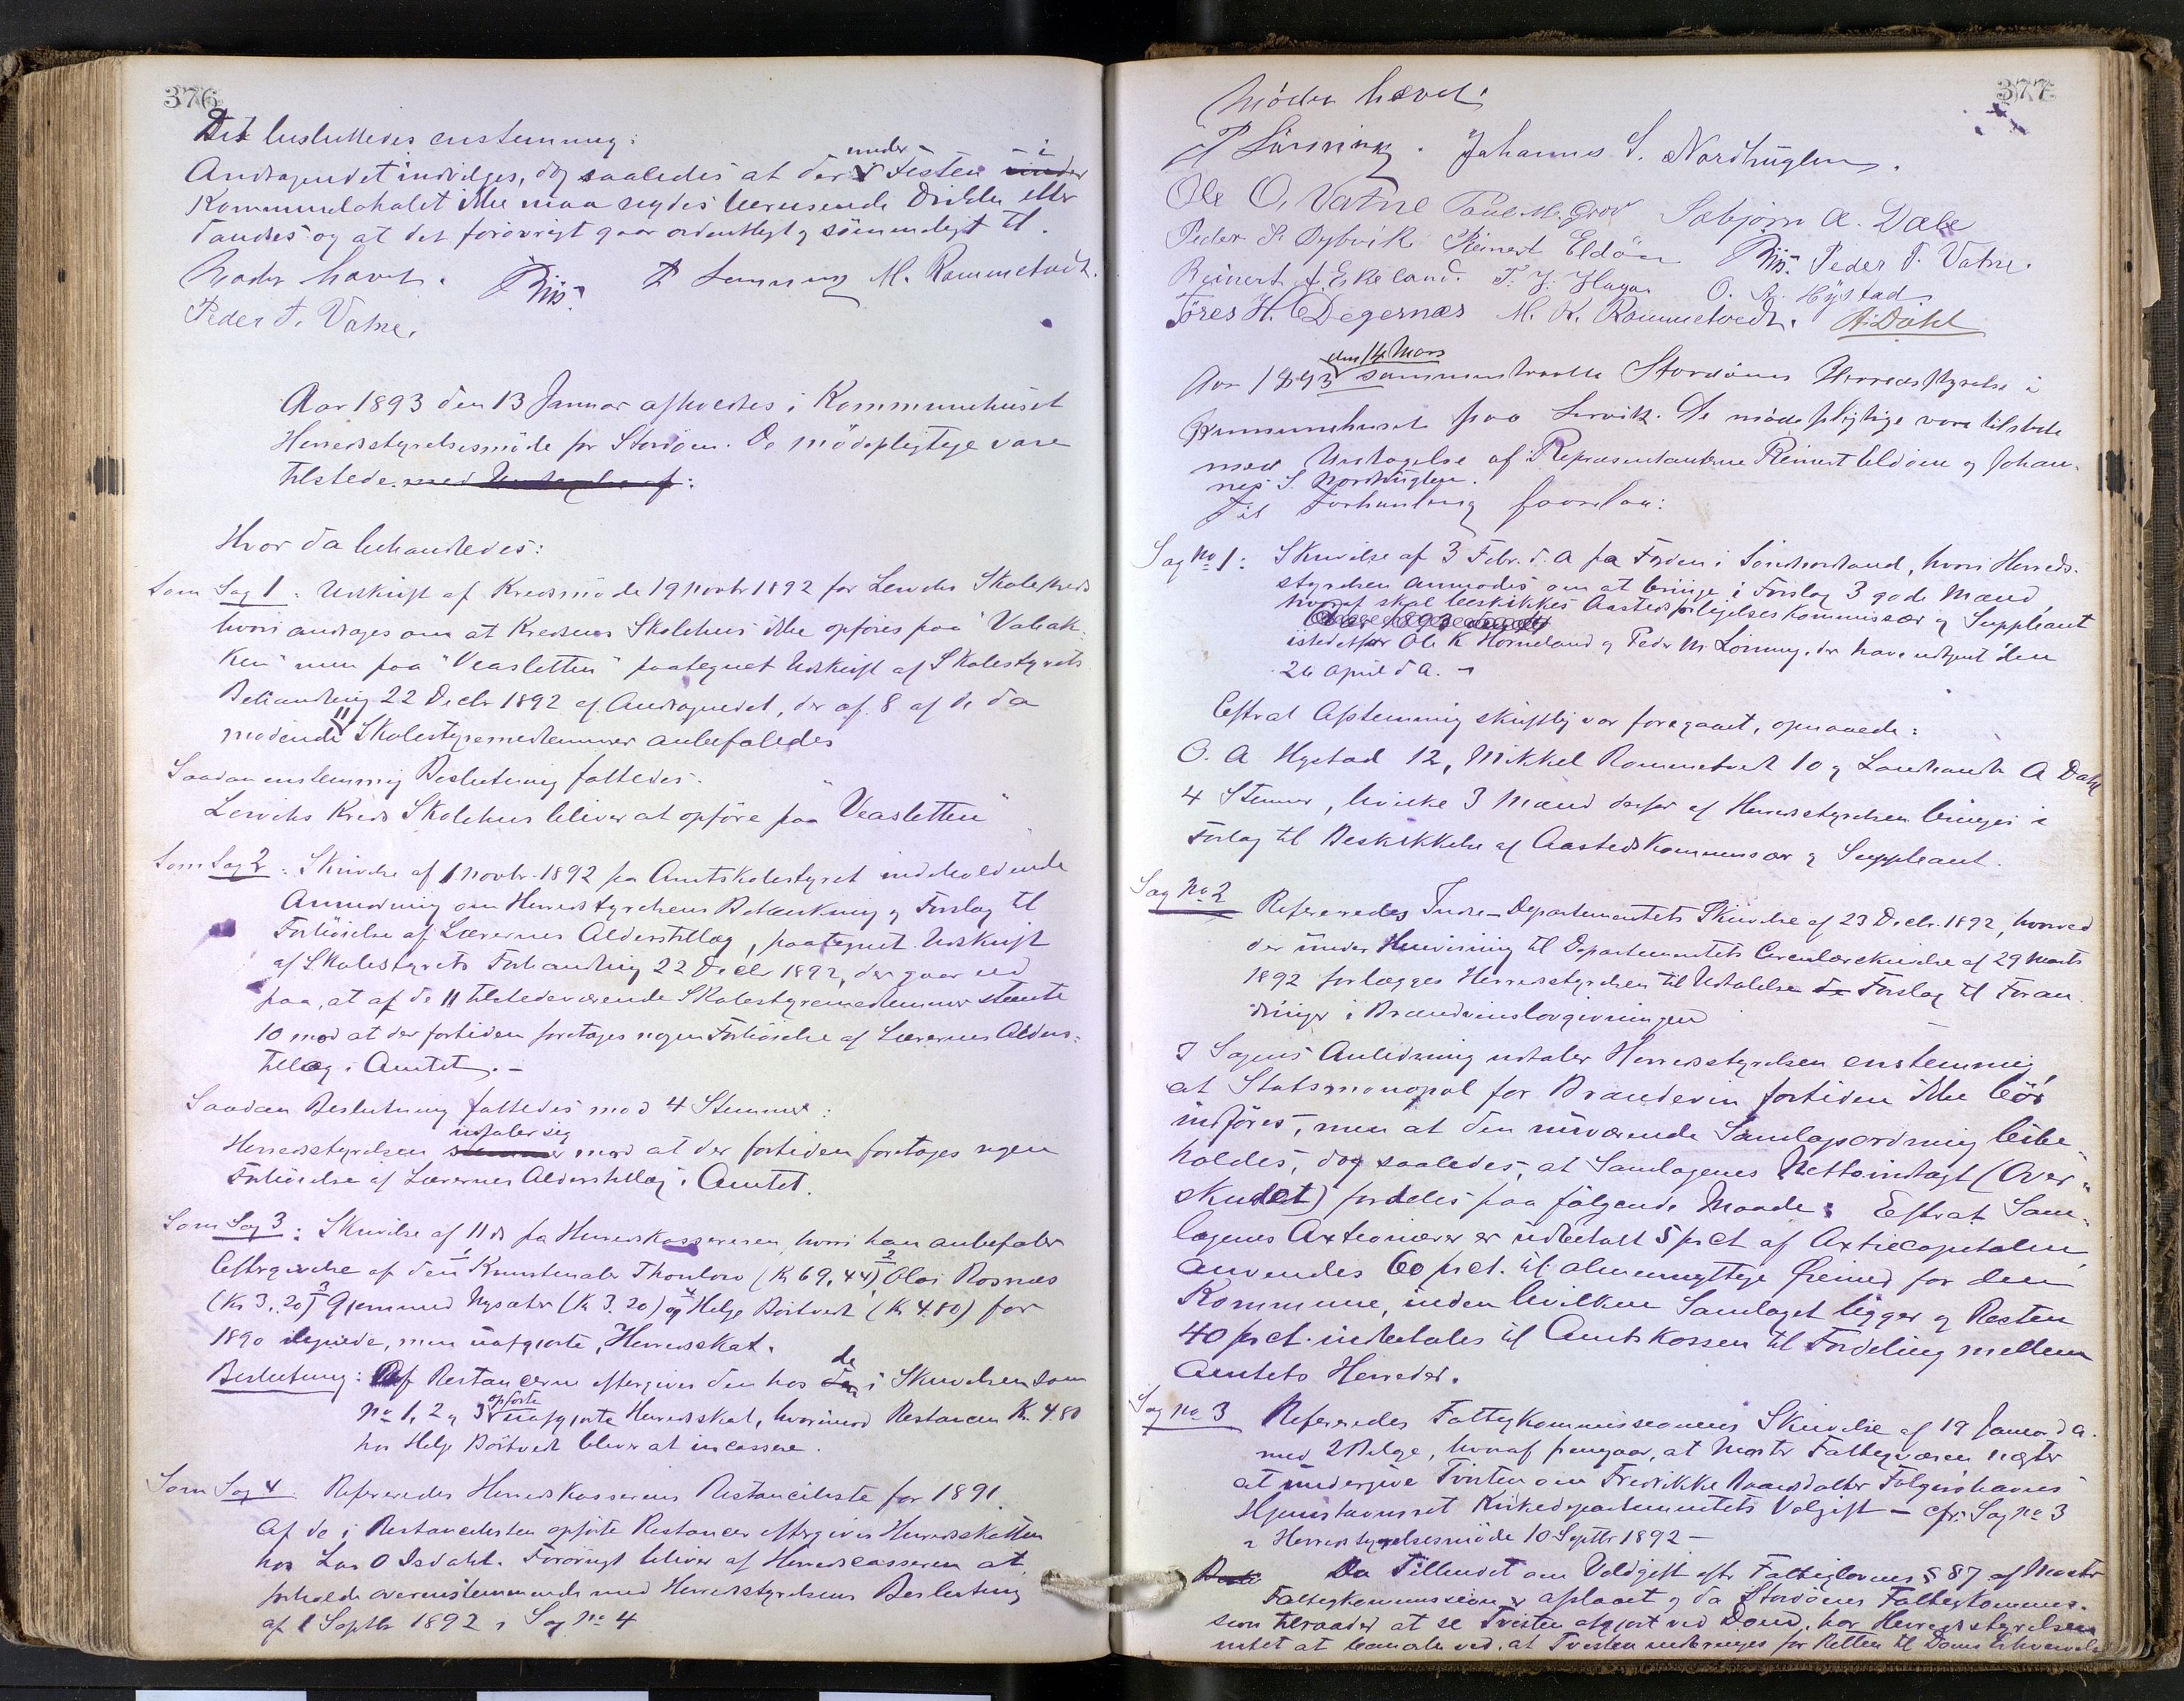 376
Det besluttedes enstemmig:
Andragendet indvilges, dog saaledes at der under Festen i
Kommunelokalet ikke maa nydes berusende Drikke eller
dandses og at det forøvrigt gaar ordentligt og sömmeligt til.
Mödet hævet. Riis. P Lönning M. Rommetvedt.
Peder T. Vatne.
Aar 1893 den 13 Januar afholdtes i Kommunehuset
Herredsstyrelsesmöde for Stordöen. De mödepligtige vare
tilstede. med Undtagelse af:
Hvor da behandledes:
Som Sag 1: Udskrift af Kredsmöde 19 Novbr 1892 for Lerviks Skolekreds
hvori andrages om at Kredsens Skolehus ikke opföres paa "Vabak-
ken" men paa "Veasletten" paategnet Udskrift af Skolestyrets
Behandling 22 Decbr 1892 af Andragendet, der af 8 af de da
mödende 11 Skolestyremedlemmer anbefaledes
Saadan enstemmig Beslutning fattedes:
Lerviks Kreds Skolehus bliver at opföre paa "Veasletten"
Som Sag 2: Skrivelse af 1 Novbr. 1892 fra Amtskolestyret indeholdende
Anmodning om Herredsstyrelsens Betænkning og Forslag til
Forhöielse af Lærernes Alderstillæg, paategnet Udskrift
af Skolestyrets Forhandling 22 Decbr 1892, der gaar ud
paa, at af de 11 tilstedeværende Skolestyremedlemmer stemte
10 mod at der fortiden foretages nogen Forhöielse af Lærernes Alders-
tillæg i Amtet. -
Saadan Beslutning fattedes mod 4 Stemmer:
Herredsstyrelsen udtaler sig mod at der fortiden foretages nogen
Forhöielse af Lærernes Alderstillæg i Amtet.
Som Sag 3: Skrivelse af 11 ds fra Herredskassereren, hvori han anbefaler
Eftergivelse af den 1 Kunstmaler Thoulow (Kr 69,44), 2 Oloi Rosnæs
(Kr 3.20) 3 Gjermund Nysæter (Kr 3.20) og 4 Helge Börtvedt (Kr 4.80) for
1890 ilignede, men uafgjorte, Herredsskat.
Beslutning: Af Restancerne eftergives den hos de i Skrivelsen som
No 1, 2 og 3 opförte uafgjorte Herredsskat, hvorimod Restancen Kr. 4.80
hos Helge Börtvedt bliver at incassere.
Som Sag 4. Refereredes Herredskassererens Restanceliste for 1891.
Af de i Restancelisten opförte Restancer eftergives Herredsskatten
hos Lars O Isdahl. Forövrigt bliver af Herredscassereren at
forholde overensstemmende med Herredsstyrelsens Beslutning
af 1 Septbr 1892 i Sag No 4
377
Mödet hævet.
P Lönning. Johannes S. Nordhüglen.
Ole O. Vatne Paul M. Grov Sæbjörn A. Dale
Peder P. Dybvik Reinert Eldöen Riis. Peder T. Vatne.
Reinert A. Eskeland. T. J. Haga. O. A. Hystad.
Töres H. Digernæs M. K. Rommetvedt. A. Dahl
Aar 1893 den 14 Mars sammentraadte Stordöens Herredsstyrelse i
Kommunehuset paa Lervik. De mödepligtige vare tilstede
med Undtagelse af Repræsentanterne Reinert Eldöen og Johan-
nes S. Nordhüglen.
Til Forhandling forelaa:
Sag No 1: Skrivelse af 3 Febr. d. A fra Fogden i Söndhordland, hvori Herreds-
styrelsen anmodes om at bringe i Forslag 3 gode Mænd,
hvoraf skal beskikkes Aastedsbefigtigelses Kommissær og Suppleant
istedetfor Ole K Horneland og Peder M. Lönning, der have udtjent den
26 April d A. -
Efterat Afstemning skriftlig var foregaaet, opnaaede:
O. A Hystad 12, Mikkel Rommetvedt 10 og Landhandler A Dahl
4 Stemmer, hvilke 3 Mænd derfor af Herredsstyrelsen bringes i
Forslag til Beskikkelse af Aastedskommissær og Suppleant.
Sag No 2 Refereredes Indre-Departementets Skrivelse af 23 Decbr. 1892, hvorved
der under Henvisning til Departementets Circulærskrivelse af 29 Marts
1892 forlægges Herredsstyrelsen til Udtalelse Forslag til Foran-
dringer i Brændevinslovgivningen
I Sagens Anledning udtaler Herredsstyrelsen enstemmig,
at Statsmonopol for Brændevin fortiden ikke bör
indföres, men at den nuværende Samlagsordning bibe-
holdes, dog saaledes, at Samlagenes Nettoindtægt (Over-
skudet) fordeles paa fölgende Maade: Efterat Sam-
lagenes Axtionærer er udbetalt 5 prct af Axtiecapitalen,
anvendes 60 prct. til almennyttige Öiemed for den
Kommune, inden hvilken Samlaget ligger og Resten
40 prct. indbetales til Amtskassen til Fordeling mellem
Amtets Herreder.
Sag No 3 Refereredes Fattigkommissionens Skrivelse af 19 Januar d A.
med 2 Bilage, hvoraf fremgaar, at Moster Fattigvæsen nægter
at undergive Tvisten om Fredrikke
Hjemstavnsret Kirkedepartementets Voldgift - cfr. Sag No 3
i Herredsstyrelsesmöde 10 Septbr 1892 -
Da Tilbudet om Voldgift efter Fattiglovens § 87 af Moster
Fattigkommission er afslaaet og da Stordöens Fattigkommis-
sion tilraader at se Tvisten afgjort ved Dom, har Herredsstyrelsen
intet at bemærke ved, at Tvisten indbringes for Retten til Doms Erhvervelse